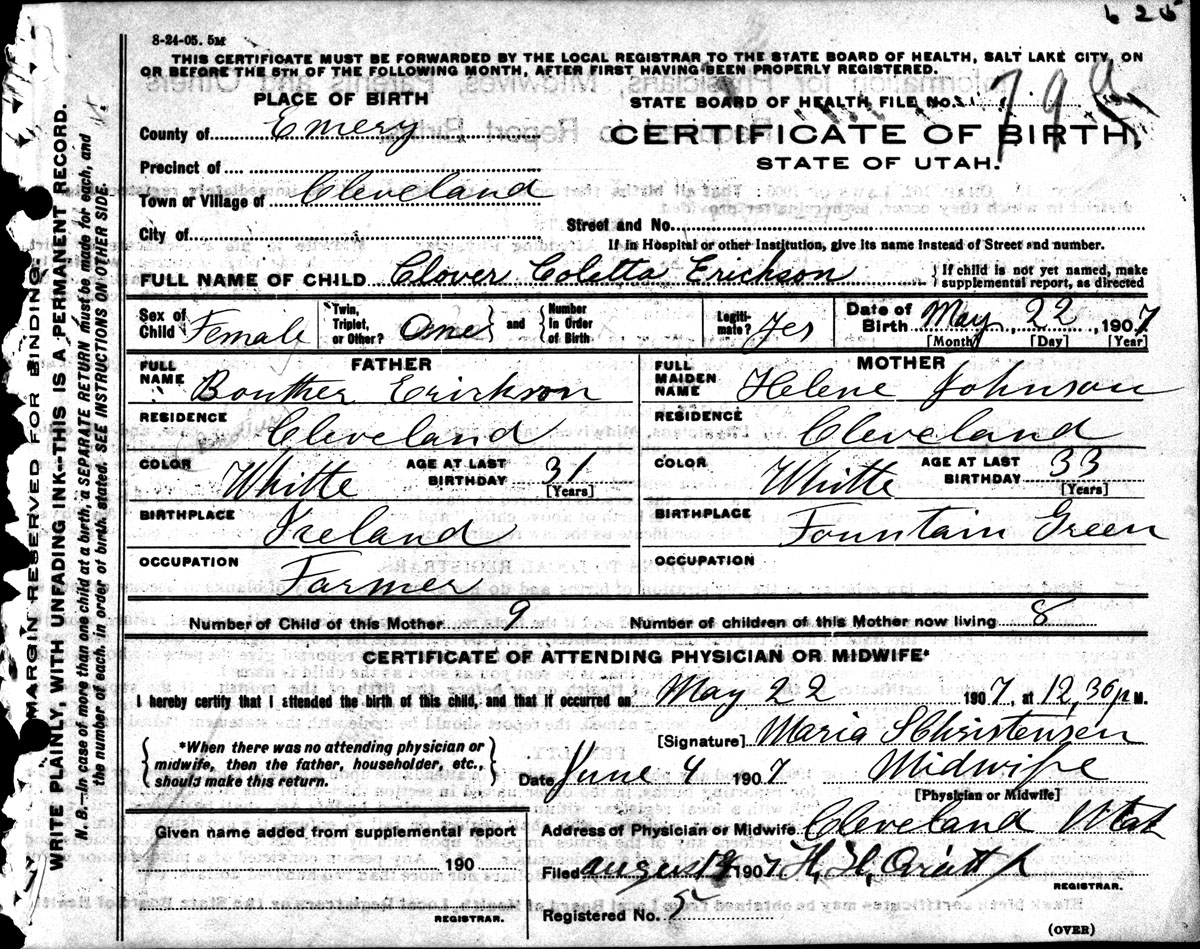 6 25
8-24-05. 5M
THIS CERTIFICATE MUST BE FORWARDED BY THE LOCAL REGISTRAR TO THE STATE BOARD OF HEALTH, SALT LAKE CITY, ON
OR BEFORE THE 5TH OF THE FOLLOWING MONTH, AFTER FIRST HAVING BEEN PROPERLY REGISTERED.
PLACE OF BIRTH
STATE BOARD OF HEALTH FILE No.
County of Emery
CERTIFICATE OF BIRTH,
STATE OF UTAH.
Precinct of
Town or Village of Cleveland
City of
Street and No.
If in Hospital or other Institution, give its name instead of Street and number.
FULL NAME OF CHILD Clover Coletta Erickson } If child is not yet named, make supplemental report, as directed
Sex of Child Female Twin, Triplet, or Other? One } and { Number in Order of Birth Legitimate? Yes Date of Birth May, 22, 1907
[Month] [Day] [Year]
FATHER MOTHER
FULL NAME Bouther Erickson FULL MAIDEN NAME Helene Johnson
RESIDENCE Cleveland RESIDENCE Cleveland
COLOR Whitte AGE AT LAST BIRTHDAY 31 [Years] COLOR Whitte AGE AT LAST BIRTHDAY 33 [Years]
BIRTHPLACE Iceland BIRTHPLACE Fountain Green
OCCUPATION Farmer OCCUPATION
Number of Child of this Mother 9 Number of children of this Mother now living 8
CERTIFICATE OF ATTENDING PHYSICIAN OR MIDWIFE*
I hereby certify that I attended the birth of this child, and that it occurred on May 22 1907, at 12,30 p M.
{ *When there was no attending physician or midwife, then the father, householder, etc., should make this return. }
[Signature] Maria S Christensen
Date June 4 1907 Midwife
[Physician or Midwife]
Given name added from supplemental report
190
REGISTRAR.
Address of Physician or Midwife Cleveland Utah
Filed august 1907 H. H. Oviatt Jr
REGISTRAR.
Registered No. 5
(OVER)
MARGIN RESERVED FOR BINDING.
WRITE PLAINLY, WITH UNFADING INK--THIS IS A PERMANENT RECORD.
N. B.--In case of more than one child at a birth, a SEPARATE RETURN must be made for each, and
the number of each, in order of birth, stated. SEE INSTRUCTIONS ON OTHER SIDE.